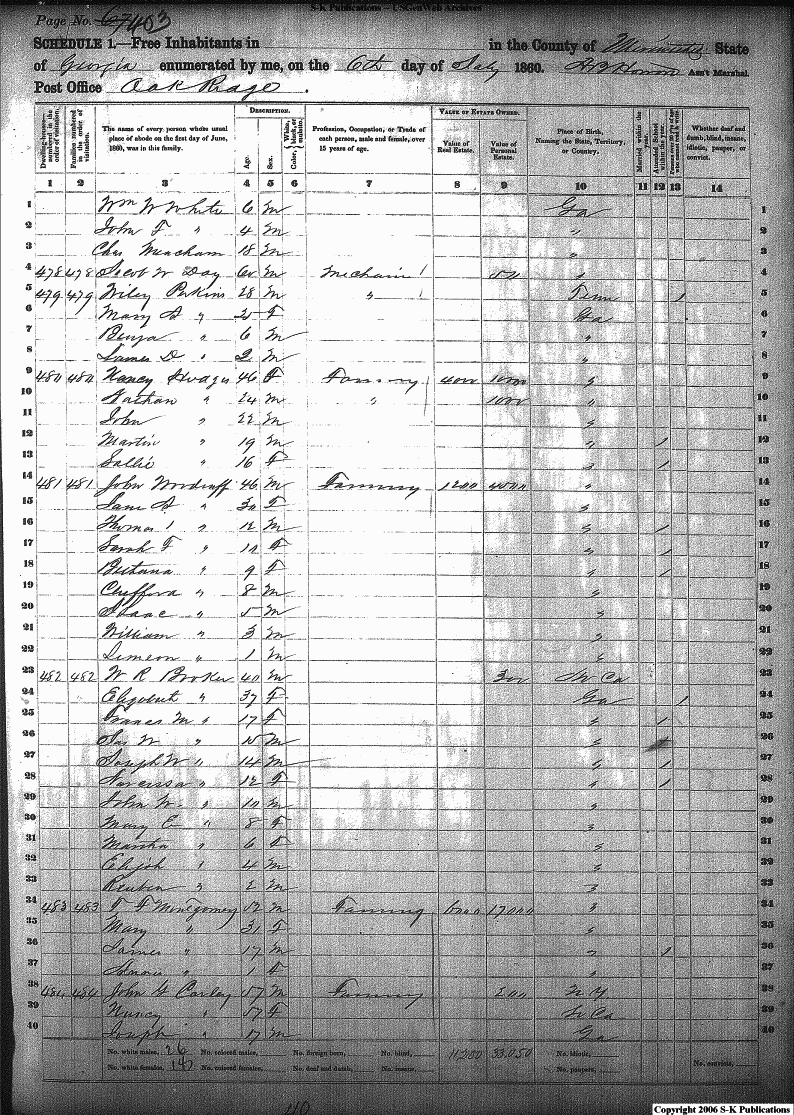 S-K Publications – USGenWeb Archives
Page No. 67 403
SCHEDULE 1.—Free Inhabitants in in the County of State
of Georgia enumerated by me, on the 6th day of July 1860. Ass't Marshal
Post Office Oak Ridge.
Dwelling-houses—numbered in the order of visitation. Families numbered in the order of visitation. The name of every person whose usual place of abode on the first day of June, 1860, was in this family. DESCRIPTION. Age. Sex. Color, White, black, or mulatto. Profession, Occupation, or Trade of each person, male and female, over 15 years of age. VALUE OF ESTATE OWNED. Value of Real Estate. Value of Personal Estate. Place of Birth, Naming the State, Territory, or Country. Married within the year. Attended School within the year. Whether deaf and dumb, blind, insane, idiotic, pauper, or convict.
1 2 3 4 5 6 7 8 9 10 11 12 13 14
1 Wm W White 6 m Ga 1
2 John F " 4 m " 2
3 Chs Meacham 18 m " 3
4 478 478 Jacob W Day 60 m Mechanic 50 " 4
5 479 479 Wiley Perkins 28 m " Tenn / 5
6 Mary A " 25 F Ga 6
7 Benja " 6 m " 7
8 James D " 2 m " 8
9 480 480 Nancy Hodges 46 F Farming 4000 " 9
10 Nathan " 24 m " 1000 " 10
11 John " 22 m " 11
12 Martin " 19 m " / 12
13 Sallie " 16 F " / 13
14 481 481 John Woodruff 46 m Farming 1200 4000 " 14
15 Jane A " 30 F " 15
16 Thomas " 12 m " / 16
17 Sarah F " F " / 17
18 " 9 F " / 18
19 " 8 m " 19
20 Isaac " 5 m " 20
21 William " 3 m " 21
22 Simeon " 1 m " 22
23 482 482 W R Booker 40 m 300 N Ca 23
24 Elizabeth " 37 F Ga / 24
25 Frances M " 17 F " / 25
26 Jas W " 15 m " 26
27 Joseph W " 14 m " / 27
28 Narcissa " 12 F " / 28
29 John W " 10 m " 29
30 Mary E " 8 F " 30
31 Martha " 6 F " 31
32 Elijah " 4 m " 32
33 Reuben " 2 m " 33
34 483 483 T F Montgomery 52 m Farming 6000 17000 " 34
35 Mary " 31 F " 35
36 James " 17 m " / 36
37 " 1 F " 37
38 484 484 John G Carley 57 m Farming 200 N Y 38
39 Nancy " 57 F 39
40 Joseph " 17 m Ga 40
No. white males, 26 No. colored males, No. foreign born, No. blind, 11,200 33,050 No. idiotic,
No. white females, 14 No. colored females, No. deaf and dumb, No. insane, No. paupers, No. convicts,
Copyright 2006 S-K Publications